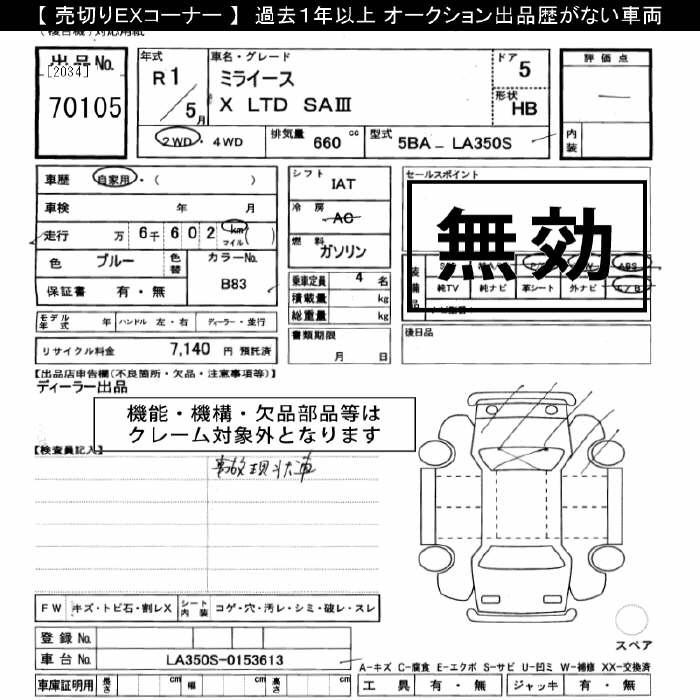 【 売切りEXコーナー 】 過去１年以上 オークション出品歴がない車両
出品No.
[2034]
70105
年式
R1/5月
車名・グレード
ミライース
X LTD SAⅢ
ドア
5
形状
HB
評価点
―
内装
2WD ・ 4WD
排気量 660 cc
型式 5BA- LA350S
車歴 自家用・( )
車検 年 月
走行 万 6千 6 0 2 km マイル ( )
色 ブルー 色替
カラーNo. B83
保証書 有・無
シフト IAT
冷房 AC
燃料 ガソリン
乗車定員 4 名
積載量 kg
総重量 kg
セールスポイント
無効
装備品
ABS
純TV 純ナビ 革シート 外ナビ エアB
モデル年式 年 ハンドル 左・右 ディーラー・並行
リサイクル料金 7,140 円 預託済
書類期限 月 日
後日品
【出品店申告欄(不良箇所・欠品・注意事項等)】
ディーラー出品
機能・機構・欠品部品等は
クレーム対象外となります
【検査員記入】
事故現状車
FW キズ・トビ石・割レX シート内装 コゲ・穴・汚レ・シミ・破レ・スレ
スペア
登録No.
車台No. LA350S-0153613
A-キズ C-腐食 E-エクボ S-サビ U-凹ミ W-補修 XX-交換済
車庫証明用 長さ cm 幅 cm 高さ cm
工具 有・無 ジャッキ 有・無